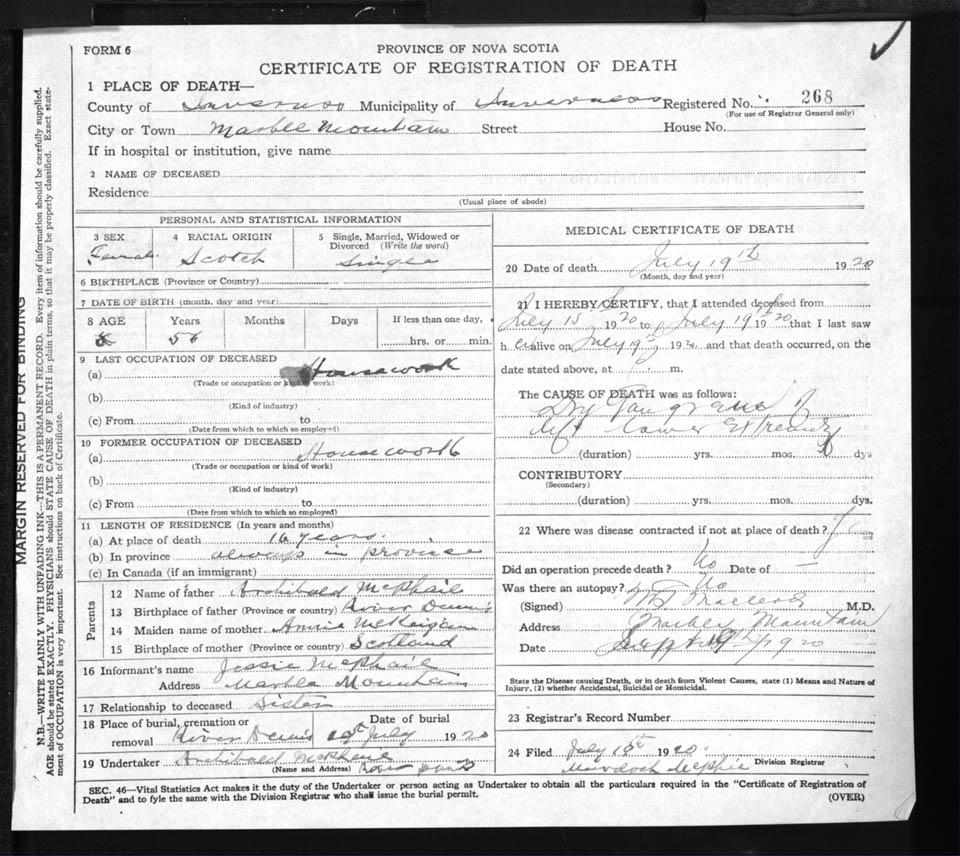 FORM 6
PROVINCE OF NOVA SCOTIA
CERTIFICATE OF REGISTRATION OF DEATH
1 PLACE OF DEATH—
County of Inverness Municipality of Inverness Registered No. 268
(For use of Registrar General only)
City or Town Marble Mountain Street House No.
If in hospital or institution, give name
2 NAME OF DECEASED
Residence
(Usual place of abode)
PERSONAL AND STATISTICAL INFORMATION
3 SEX 4 RACIAL ORIGIN 5 Single, Married, Widowed or Divorced (Write the word)
Female Scotch Single
6 BIRTHPLACE (Province or Country)
7 DATE OF BIRTH (month, day and year)
8 AGE Years Months Days If less than one day,
hrs. or min.
9 LAST OCCUPATION OF DECEASED
(a) Housework
(Trade or occupation or kind of work)
(b)
(Kind of industry)
(c) From to
(Date from which to which so employed)
10 FORMER OCCUPATION OF DECEASED
(a) Housework
(Trade or occupation or kind of work)
(b)
(Kind of industry)
(c) From to
(Date from which to which so employed)
11 LENGTH OF RESIDENCE (In years and months)
(a) At place of death 16 years.
(b) In province always in province
(c) In Canada (if an immigrant)
Parents
12 Name of father Archibald McPhail
13 Birthplace of father (Province or country) River Dennis
14 Maiden name of mother Annie McKeigan
15 Birthplace of mother (Province or country) Scotland
16 Informant's name Jessie McPhail
Address Marble Mountain
17 Relationship to deceased Sister
18 Place of burial, cremation or removal River Dennis Date of burial July 1920
19 Undertaker Archibald McPhail
(Name and Address) River Dennis
MEDICAL CERTIFICATE OF DEATH
20 Date of death July 19th 1920
(Month, day and year)
21 I HEREBY CERTIFY, that I attended deceased from
July 15 1920 to July 19th 1920 that I last saw
h er alive on July 19th 1920 and that death occurred, on the
date stated above, at m.
The CAUSE OF DEATH was as follows:
Dry Gangrene of
left lower Extremity
(duration) yrs. mos. dys
CONTRIBUTORY
(Secondary)
(duration) yrs. mos. dys.
22 Where was disease contracted if not at place of death?
Did an operation precede death? No Date of —
Was there an autopsy? No
(Signed) Macleod M.D.
Address Marble Mountain
Date Sept 1920
State the Disease causing Death, or in death from Violent Causes, state (1) Means and Nature of
Injury, (2) whether Accidental, Suicidal or Homicidal.
23 Registrar's Record Number
24 Filed July 1920
Murdoch Division Registrar
SEC. 46—Vital Statistics Act makes it the duty of the Undertaker or person acting as Undertaker to obtain all the particulars required in the "Certificate of Registration of
Death" and to fyle the same with the Division Registrar who shall issue the burial permit. (OVER)
MARGIN RESERVED FOR BINDING
N.B.—WRITE PLAINLY WITH UNFADING INK—THIS IS A PERMANENT RECORD. Every item of information should be carefully supplied.
AGE should be stated EXACTLY. PHYSICIANS should STATE CAUSE OF DEATH in plain terms, so that it may be properly classified. Exact state-
ment of OCCUPATION is very important. See instructions on back of Certificate.